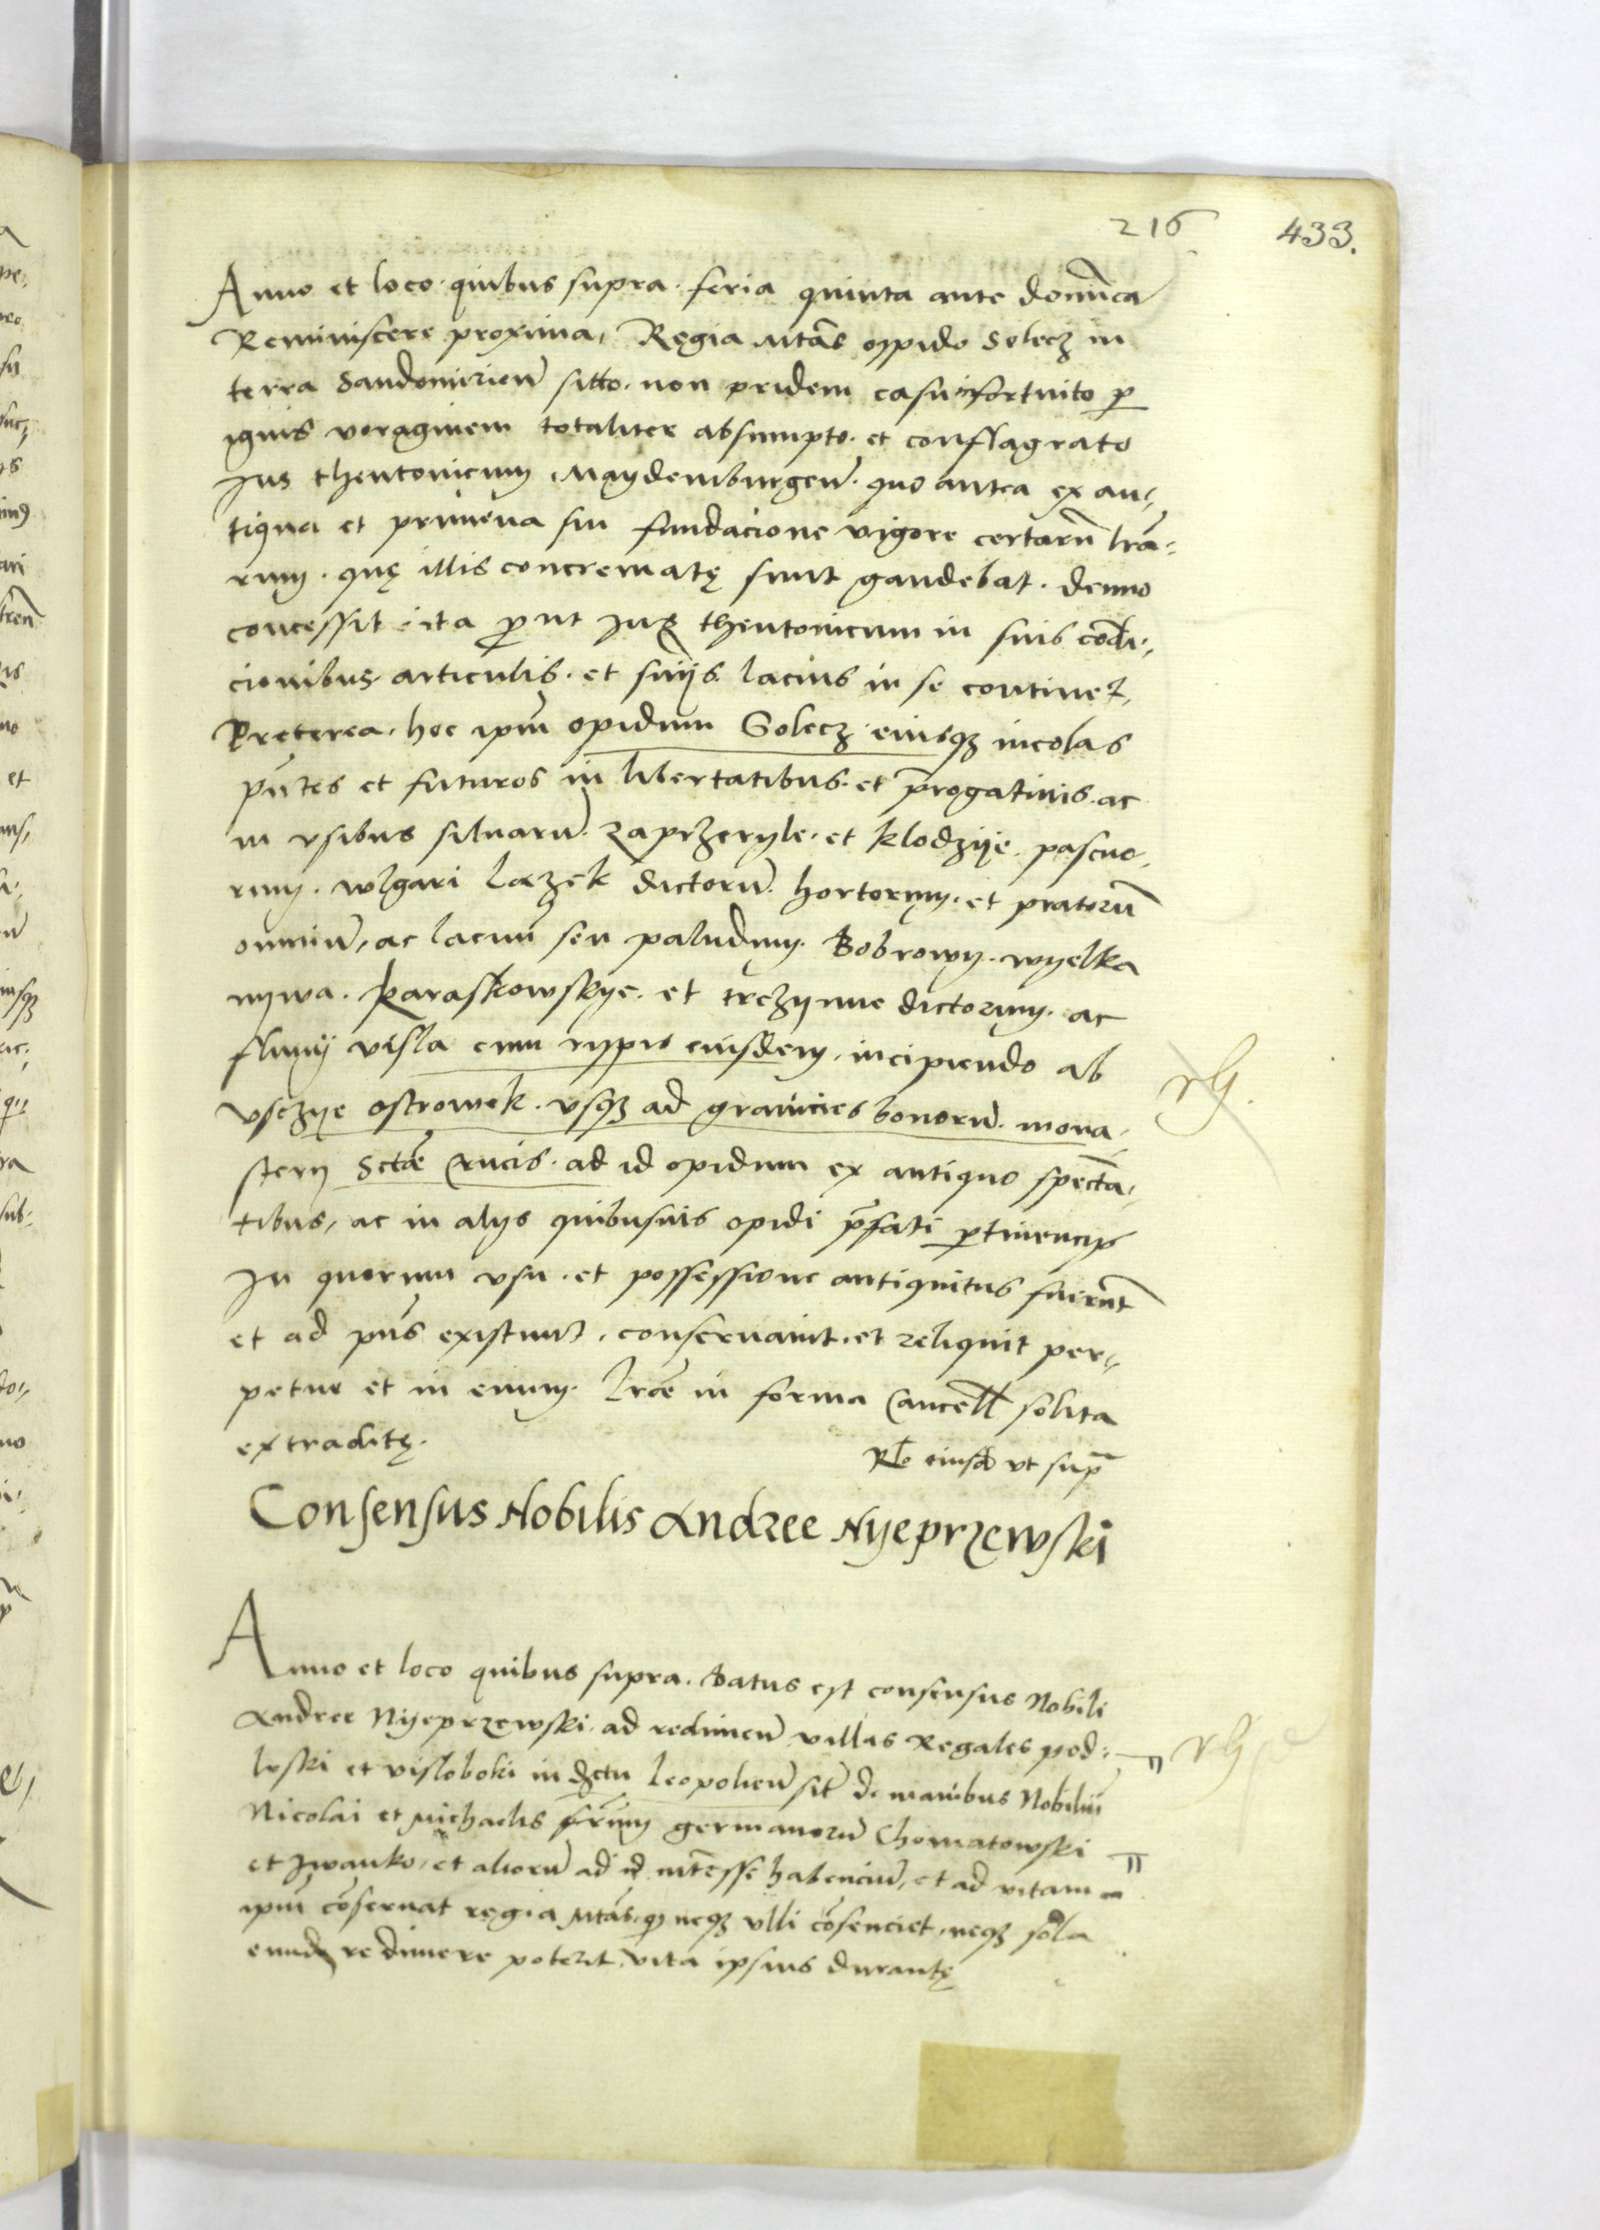 216 433.
Anno et loco quibus supra. feria quinta ante domi͞ca
Reminiscere proxima, Regia Mtãs oppido Solecz in
terra Sandomirień sitto. non pridem casu infortuito p̱
ignis voraginem totaliter absumpto. et conflagrato
Jus theutonicum Maydemburgeń. quo antea ex an⸗
tiqua et primeua sui fundacione vigore certarũ lrã⸗
rum. quę illis concrematę sunt gaudebat. denuo
concessit ita ꝓut Jus theutonicum in suis cõdi⸗
cionibus articulis. et suijs lacius in se continet,
Preterea. hoc ipm̃ opidum Solecz eiusqꝫ incolas
pñtes et futuros in libertatibus. et p̃rogatiuis. ac
in vsibus siluarũ. zaprzeryle. et klodzije. pascuo⸗
rum. wlgari Lazek dictorũ. hortorum. et pratorũ
omniũ, ac lacuũ seu paludum. Bobrowy. wyelka
nywa. Karaskowskye. et trczynne dictorum. ac
fluuij visla cum rypis eiusdem, incipiendo ab
vsczye ostrowek. vsqꝫ ad granicies bonorũ. mona⸗
sterij Sctæ Crucis. ad id opidum ex antiquo spectã⸗
tibus, ac in alijs quibusuis opidi p̃fati p̱tinencijs
In quorum vsu. et possessione antiquitus fuerũt
et ad pñs existunt, conseruauit. et reliquit per⸗
petue et in euum. Lrãe in forma Cancell̃ solita
extraditę.
Rlõ eiusd̃ vt sup̃
Consensus Nobilis Andree Nyeprzewski
Anno et loco quibus supra. datus est consensus Nobili
Andree Nyeprzewski. ad redimeñ villas Regales pod⸗
leski et visloboki in dr̃ctu Leopolieñ sit̃ de manibus Nobiliũ
Nicolai et Michaelis fr̃um germanorũ Chomatowski
et Jwanko, et aliorũ ad id int̃esse habenciũ, et ad vitam
ipm̃ cõseruat regia Mtãs, qꝫ neqꝫ vlli cõsenciet, neqꝫ sola
eund̃ redimere poterit, vita ipsius durantę